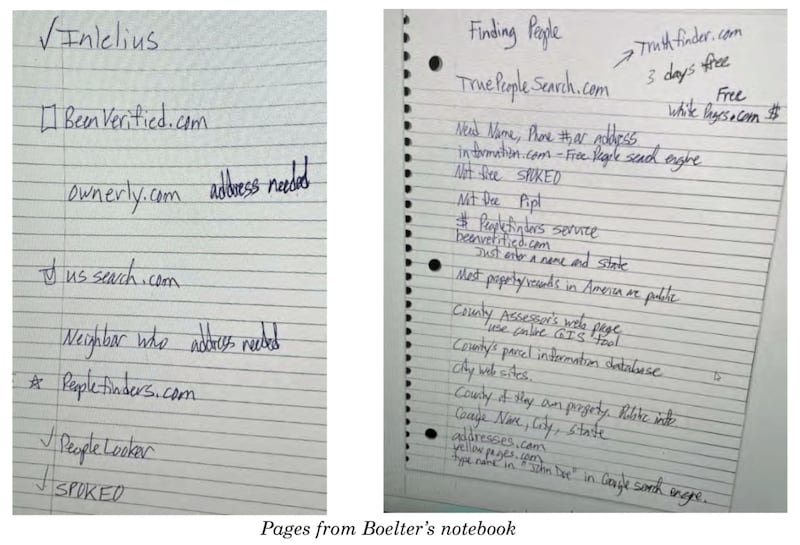 ✓ Inlelius
☐ BeenVerified.com
ownerly.com address needed
☑ us search.com
Neighbar who address needed
☆ Peoplefinders.com
✓ PeopleLooker
✓ SPOKEO
Finding People
→ Truthfinder.com
3 days free
TruePeopleSearch.com
Free
white Pages.com $
Need Name, Phone #, or address
information.com - Free People search engine
Not free SPOKEO
Not free Pipl
$ Peoplefinders service
beenverified.com
Just enter a name and state
Most property records in America are public
County Assessor's web page
use online GIS tool
County's parcel information database
City web sites.
County if they own property. Public info
Google Name, City, State
addresses.com
yellowpages.com
type name in "John Doe" in Google search engine.
Pages from Boelter's notebook